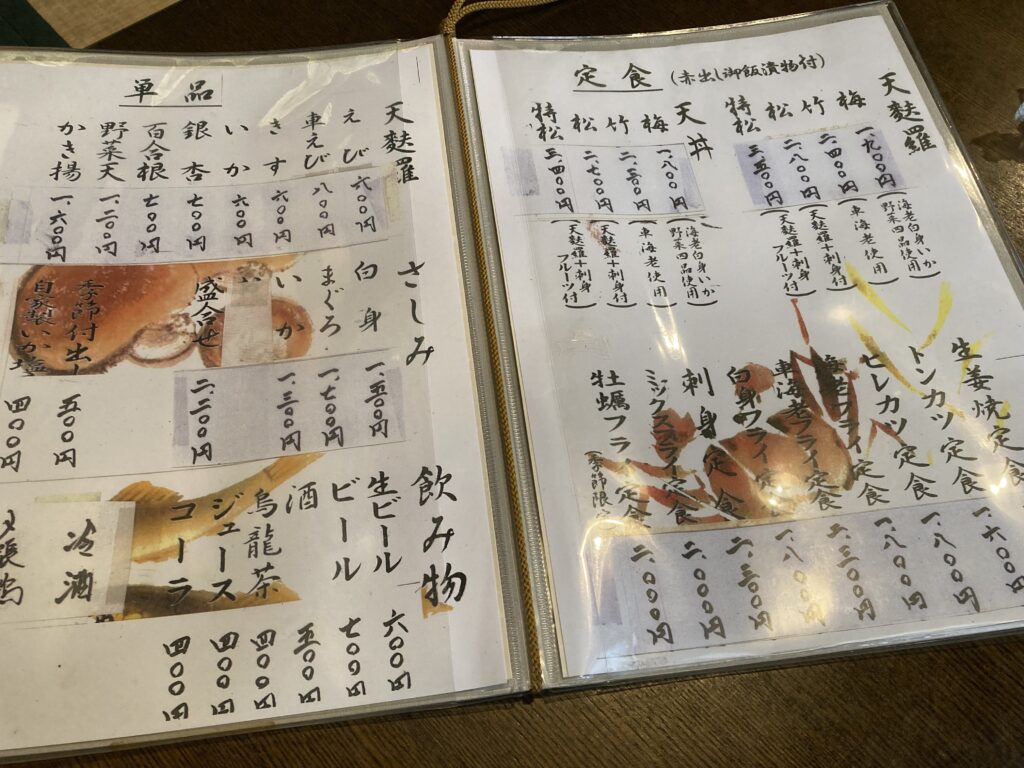 定食 (赤出し御飯漬物付)
天麩羅
梅 一、九〇〇円 (海老白身いか野菜四品使用)
竹 二、四〇〇円 (車海老使用)
松 二、八〇〇円 (天麩羅+刺身)
特松 三、五〇〇円 (天麩羅+刺身フルーツ付)
天丼
梅 一、八〇〇円 (海老白身いか野菜四品使用)
竹 二、三〇〇円 (車海老使用)
松 二、七〇〇円 (天麩羅+刺身)
特松 三、四〇〇円 (天麩羅+刺身フルーツ付)
生姜焼定食
トンカツ定食
ヒレカツ定食
海老フライ定食
車海老フライ定食
白身フライ定食
刺身定食
ミックスフライ定食
牡蠣フライ定食
(季節限定
一、六〇〇円
一、八〇〇円
一、八〇〇円
二、三〇〇円
一、八〇〇円
二、三〇〇円
二、〇〇〇円
二、〇〇〇円
単品
天麩羅
えび 六〇〇円
車えび 八〇〇円
きす 六〇〇円
いか 六〇〇円
銀杏 七〇〇円
百合根 七〇〇円
野菜天 一、二〇〇円
かき揚 一、六〇〇円
さしみ
白身 一、五〇〇円
まぐろ 一、七〇〇円
いか 一、三〇〇円
盛合せ 二、二〇〇円
季節付出し 五〇〇円
自家製いか塩 四〇〇円
飲み物
生ビール 六〇〇円
ビール 七〇〇円
酒 五〇〇円
烏龍茶 四〇〇円
ジュース 四〇〇円
コーラ 四〇〇円
冷酒